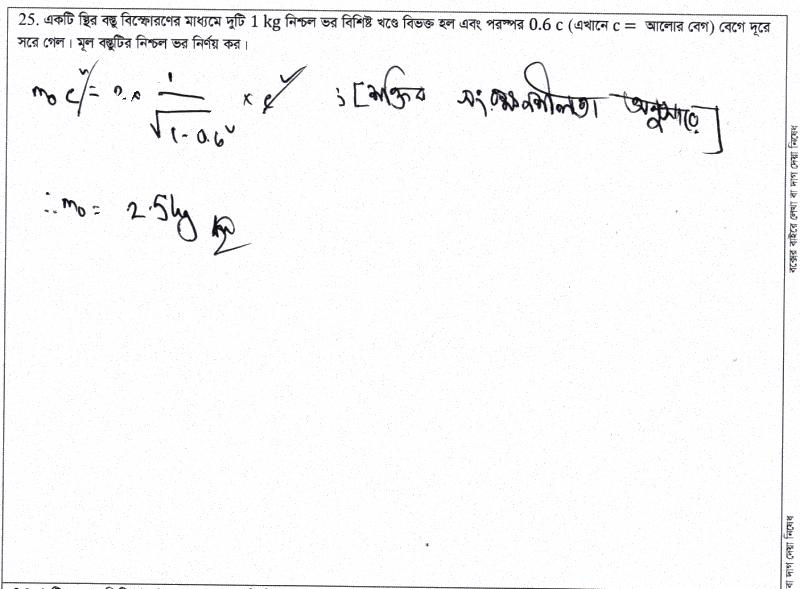 25. একটি স্থির বস্তু বিস্ফোরণের মাধ্যমে দুটি 1 kg নিশ্চল ভর বিশিষ্ট খণ্ডে বিভক্ত হল এবং পরস্পর 0.6 c (এখানে c = আলোর বেগ) বেগে দূরে
সরে গেল। মূল বস্তুটির নিশ্চল ভর নির্ণয় কর।
m₀c² = 2 × 1/√(1-0.6²) × c² ; [শক্তির সংরক্ষণশীলতা অনুসারে]
∴ m₀ = 2.5 kg
বক্সের বাইরে লেখা বা দাগ দেয়া নিষেধ
বা দাগ দেয়া নিষেধ